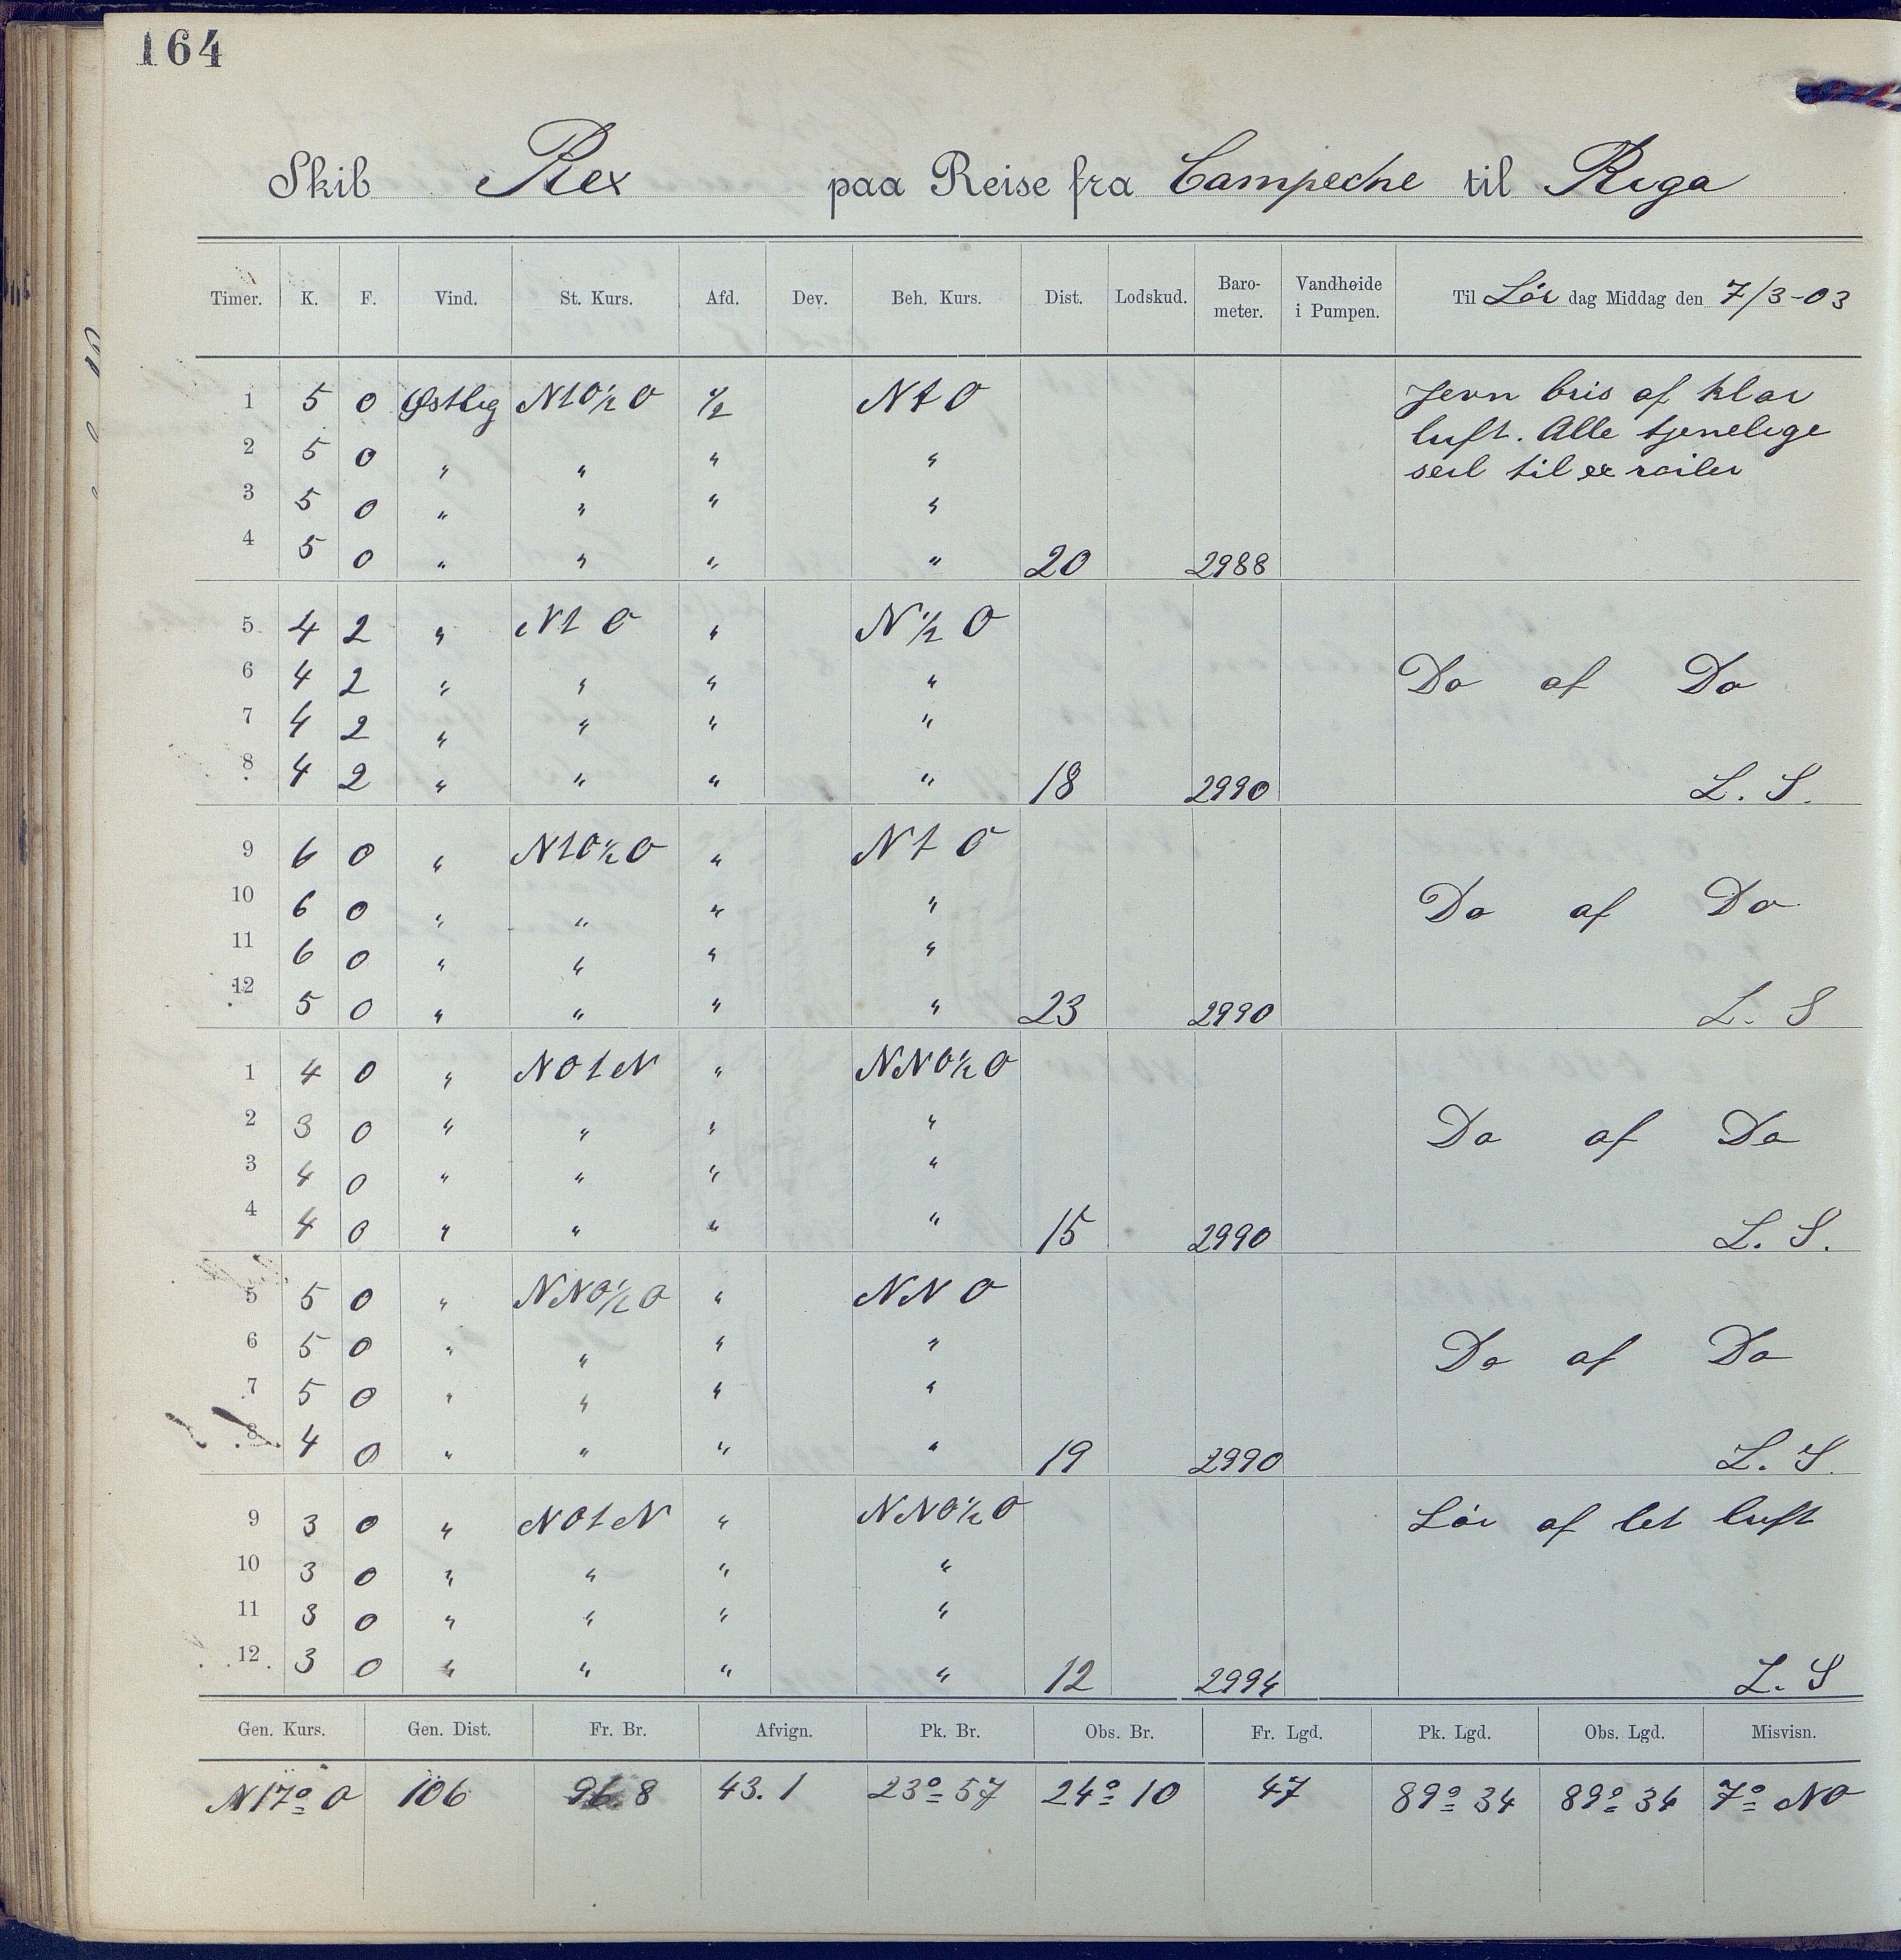 164
Skib Rex paa Reise fra Campeche til Riga
Timer. K. F. Vind. St. Kurs. Afd. Dev. Beh. Kurs. Dist. Lodskud. Baro-meter. Vandhøide i Pumpen. Til Lör dag Middag den 7/3-03
1 5 0 Østlig NtO½O ½ NtO Jevn bris af klar
luft. Alle tjenelige
2 5 0 " " " "
seil til
3 5 0 " " " "
4 5 0 " " " " 20 2988
5 4 2 " NtO " N½O
6 4 2 " " " " Do af Do
7 4 2 " " " "
8 4 2 " " " " 18 2990 L. S.
9 6 0 " NtO½O " NtO
10 6 0 " " " " Do af Do
11 6 0 " " " "
12 5 0 " " " " 23 2990 L. S
1 4 0 " NOtN " NNO½O
2 3 0 " " " " Do af Do
3 4 0 " " " "
4 4 0 " " " " 15 2990 L. S.
5 5 0 " NNO½O " NNO
6 5 0 " " " " Do af Do
7 5 0 " " " "
8 4 0 " " " " 19 2990 L. S.
9 3 0 " NOtN " NNO½O Lör af let luft
10 3 0 " " " "
11 3 0 " " " "
12 3 0 " " " " 12 2994 L. S
Gen. Kurs. Gen. Dist. Fr. Br. Afvign. Pk. Br. Obs. Br. Fr. Lgd. Pk. Lgd. Obs. Lgd. Misvisn.
N17°O 106 96.8 43.1 23° 57 24° 10 47 89° 34 89° 34 7° NO